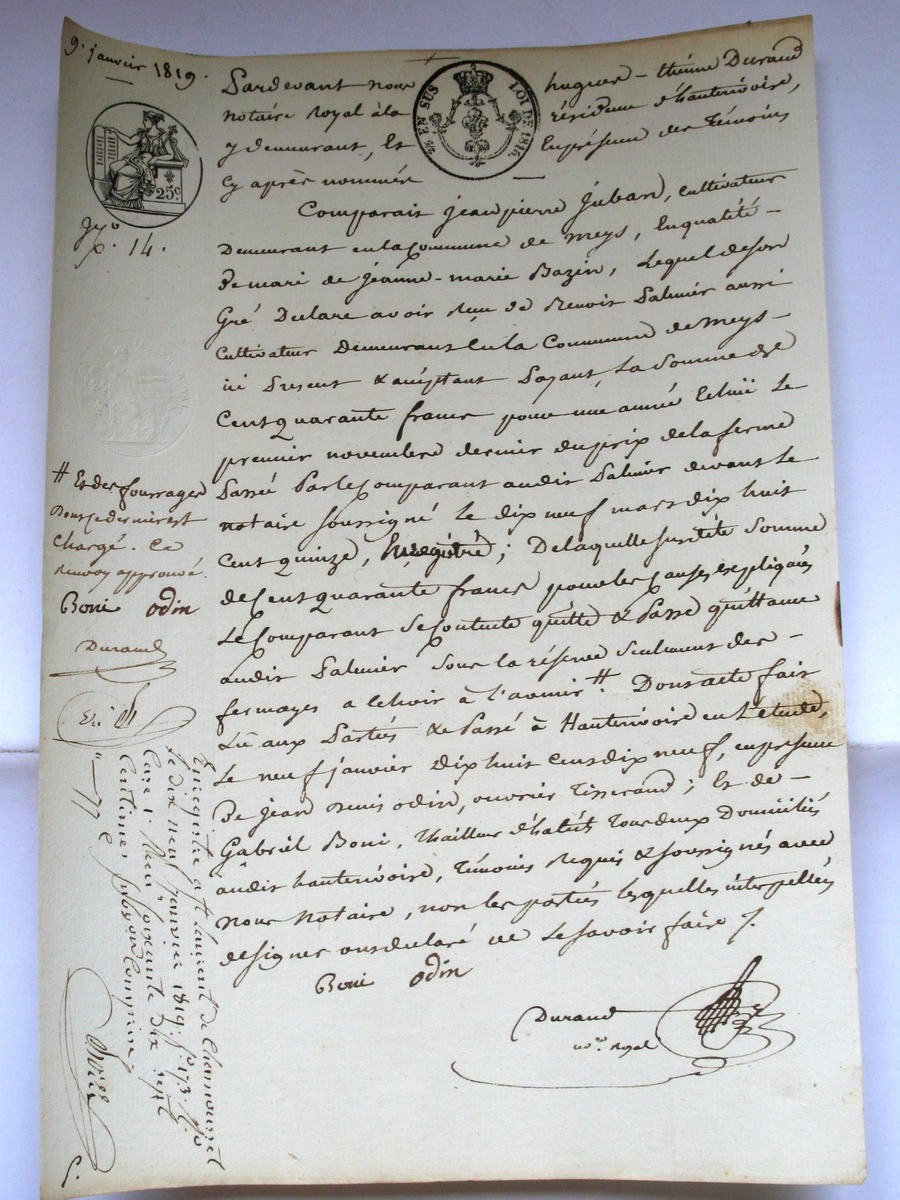 9. janvier 1819.
Pardevant nous hugues-étienne Durand
notaire royal à la résidence d'hauterivoire,
y demeurant, Et En présence des Témoins
Cy après nommés
¼ EN SUS LOI DE 1816.
25c
14.
Comparait jean pierre Juban, Cultivateur
Demeurant en la Commune de Meys, En qualité-
De mari de jéanne-marie Bazin, Lequel de son
Gré Déclare avoir Reçu de Benoit Palmier aussi
Cultivateur Demeurant En la Commune de Meys-
ici Présent & acceptant Payant, La Somme de
Cent quarante francs pour une année Echuë Le
premier novembre dernier du prix de la ferme
Passée Par le Comparant audit Palmier devant Le
notaire soussigné Le dix neuf mars dix huit
Cent quinze, Enregistré; De laquelle susdite Somme
de Cent quarante francs pour les Causes Expliquées
Le Comparant Se Contente quitte & Passe quittance
audit Palmier Sous la réserve Seulement des-
fermages a Echoir à l'avenir #. Dont acte fait
Lu aux Parties & Passé à Hauterivoire en L'étude,
Le neuf janvier Dix huit cent dix neuf, en présence
De jean Denis odin, ouvrier Tisserand; Et de-
Gabriël Boni, thailleur d'habits Tous deux Domiciliés
audit hauterivoire, Témoins Requis & soussignés avec
nous Notaire, non les parties Lesquelles interpellées
de signer ont declaré ne Le savoir faire /.
Boni odin
Durand
no.re Royal
# Et des fourrages
Dont Ce dernier est
Chargé. Ce
renvoy approuvé.
Boni odin
Durand
Enregistré a St Laurent de Chamousset
Le dix neuf janvier 1819. f° 173.
Reçu soixante Dix sept
Centimes subvention Comprise
"—77 c